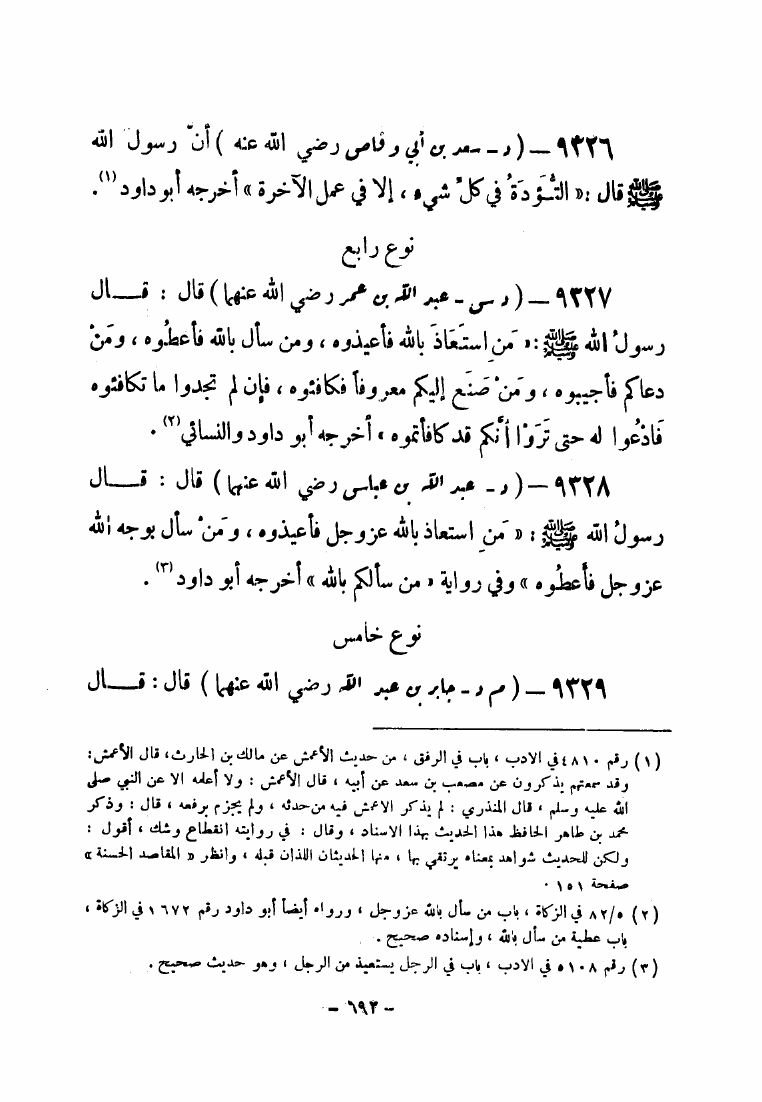 ٩٣٢٦ — ( د - سعد بن أبي وقاص رضي الله عنه ) أنَّ رسول الله
ﷺ قال : « التُّؤَدَةُ في كلِّ شيء ، إلا في عمل الآخرة » أخرجه أبو داود(١).
نوع رابع
٩٣٢٧ — ( د س - عبد الله بن عمر رضي الله عنهما ) قال : قـــال
رسولُ الله ﷺ : « مَنِ استَعَاذَ بالله فأعيذوه ، ومن سأل بالله فأعطُوه ، ومَنْ
دعاكم فأجيبوه ، ومَنْ صَنَع إليكم معروفاً فكافئوه ، فإن لم تجدوا ما تكافئوه
فَادْعُوا له حتى تَرَوْا أنَّكم قد كافأتموه » أخرجه أبو داود والنسائي(٢) .
٩٣٢٨ — ( د - عبد الله بن عباس رضي الله عنهما ) قال : قـــال
رسولُ الله ﷺ : « مَنِ استعاذ بالله عزوجل فأعيذوه ، ومَنْ سأل بوجه الله
عزوجل فأَعطُوه » وفي رواية « من سألكم بالله » أخرجه أبو داود(٣) .
نوع خامس
٩٣٢٩ — ( م د - جابر بن عبد الله رضي الله عنهما ) قال : قـــال
(١) رقم ٤٨١٠ في الادب ، باب في الرفق ، من حديث الأعمش عن مالك بن الحارث، قال الأعمش:
وقد سمعتهم يذكرون عن مصعب بن سعد عن أبيه ، قال الأعمش : ولا أعلمه الا عن النبي صلى
الله عليه وسلم ، قال المنذري : لم يذكر الاعمش فيه من حدثه ، ولم يجزم برفعه ، قال : وذكر
محمد بن طاهر الحافظ هذا الحديث بهذا الاسناد ، وقال : في روايته انقطاع وشك ، أقول :
ولكن للحديث شواهد بمعناه يرتقي بها ، منها الحديثان اللذان قبله ، وانظر « المقاصد الحسنة »
صفحة ١٥١ .
(٢) ٨٢/٥ في الزكاة ، باب من سأل بالله عزوجل ، ورواه أيضاً أبو داود رقم ١٦٧٢ في الزكاة ،
باب عطية من سأل بالله ، وإسناده صحيح .
(٣) رقم ٥١٠٨ في الادب ، باب في الرجل يستعيذ من الرجل ، وهو حديث صحيح .
- ٦٩٢ -